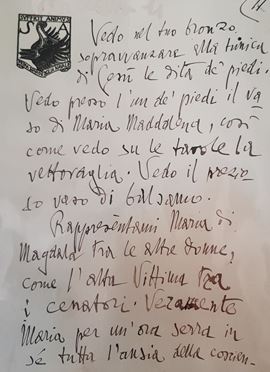 SVFFICIT ANIMVS
Vedo nel tuo bronzo
sopravvanzare alla tunica
di Gesù le dita de' piedi.
Vedo presso l'un de' piedi il va-
so di Maria Maddalena, così
come vedo su le tavole la
vettovaglia. Vedo il prezio-
so vaso di balsamo.
Rappresentami Maria di
Magdala tra le altre donne,
come l'alta Vittima tra
i cenatori. Veramente
Maria per un'ora serra in
sé tutta l'ansia della